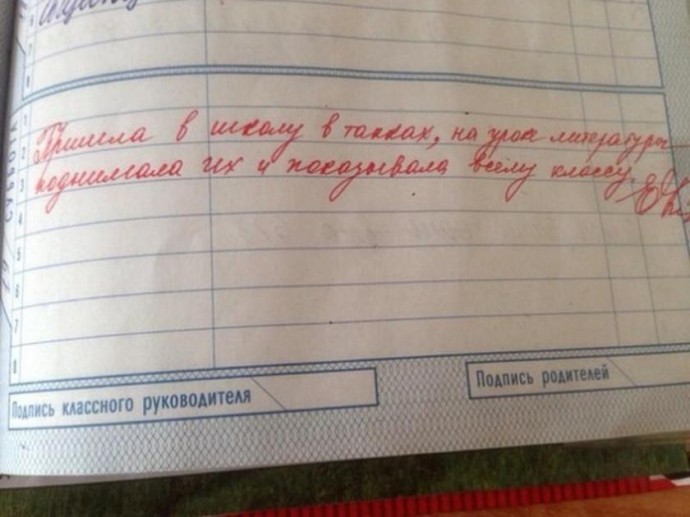 СУББОТА
1
2
3
4
5
6
7
8
Пришла в школу в тапках, на урок литературы
поднимала их и показывала всему классу
Подпись классного руководителя
Подпись родителей